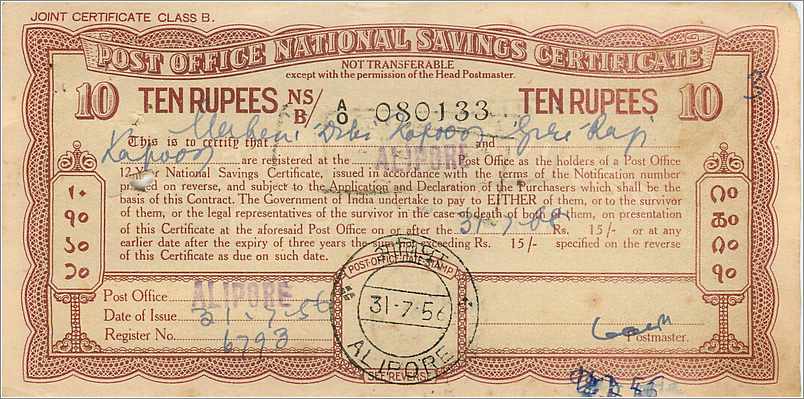 JOINT CERTIFICATE CLASS B.
POST OFFICE NATIONAL SAVINGS CERTIFICATE
NOT TRANSFERABLE
except with the permission of the Head Postmaster.
10 TEN RUPEES NS/B A/O 080133 TEN RUPEES 10
This is to certify that Kapoor and
Kapoor are registered at the ALIPORE Post Office as the holders of a Post Office
12-Year National Savings Certificate, issued in accordance with the terms of the Notification number
printed on reverse, and subject to the Application and Declaration of the Purchasers which shall be the
basis of this Contract. The Government of India undertake to pay to EITHER of them, or to the survivor
of them, or the legal representatives of the survivor in the case of death of both of them, on presentation
of this Certificate at the aforesaid Post Office on or after the 31-7-68 Rs. 15/- or at any
earlier date after the expiry of three years the sum not exceeding Rs. 15/- specified on the reverse
of this Certificate as due on such date.
Post Office ALIPORE
Date of Issue 31-7-56
Register No. 6793
POST-OFFICE DATE STAMP
31-7-56
ALIPORE
SEE REVERSE
Postmaster.